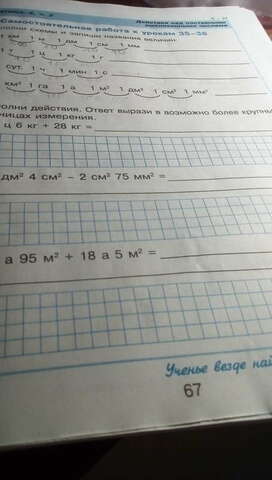 Действия над составными
Самостоятельная работа к урокам 35–36
схемы и запиши названия величин.
1 км 1 м 1 дм 1 см 1 мм
1 т 1 ц 1 кг 1 г
1 сут. 1 ч 1 мин 1 с
1 км² 1 га 1 а 1 м² 1 дм² 1 см² 1 мм²
действия. Ответ вырази в возможно более
измерения.
ц 6 кг + 28 кг =
дм² 4 см² – 2 см² 75 мм² =
а 95 м² + 18 а 5 м² =
Ученье везде
67